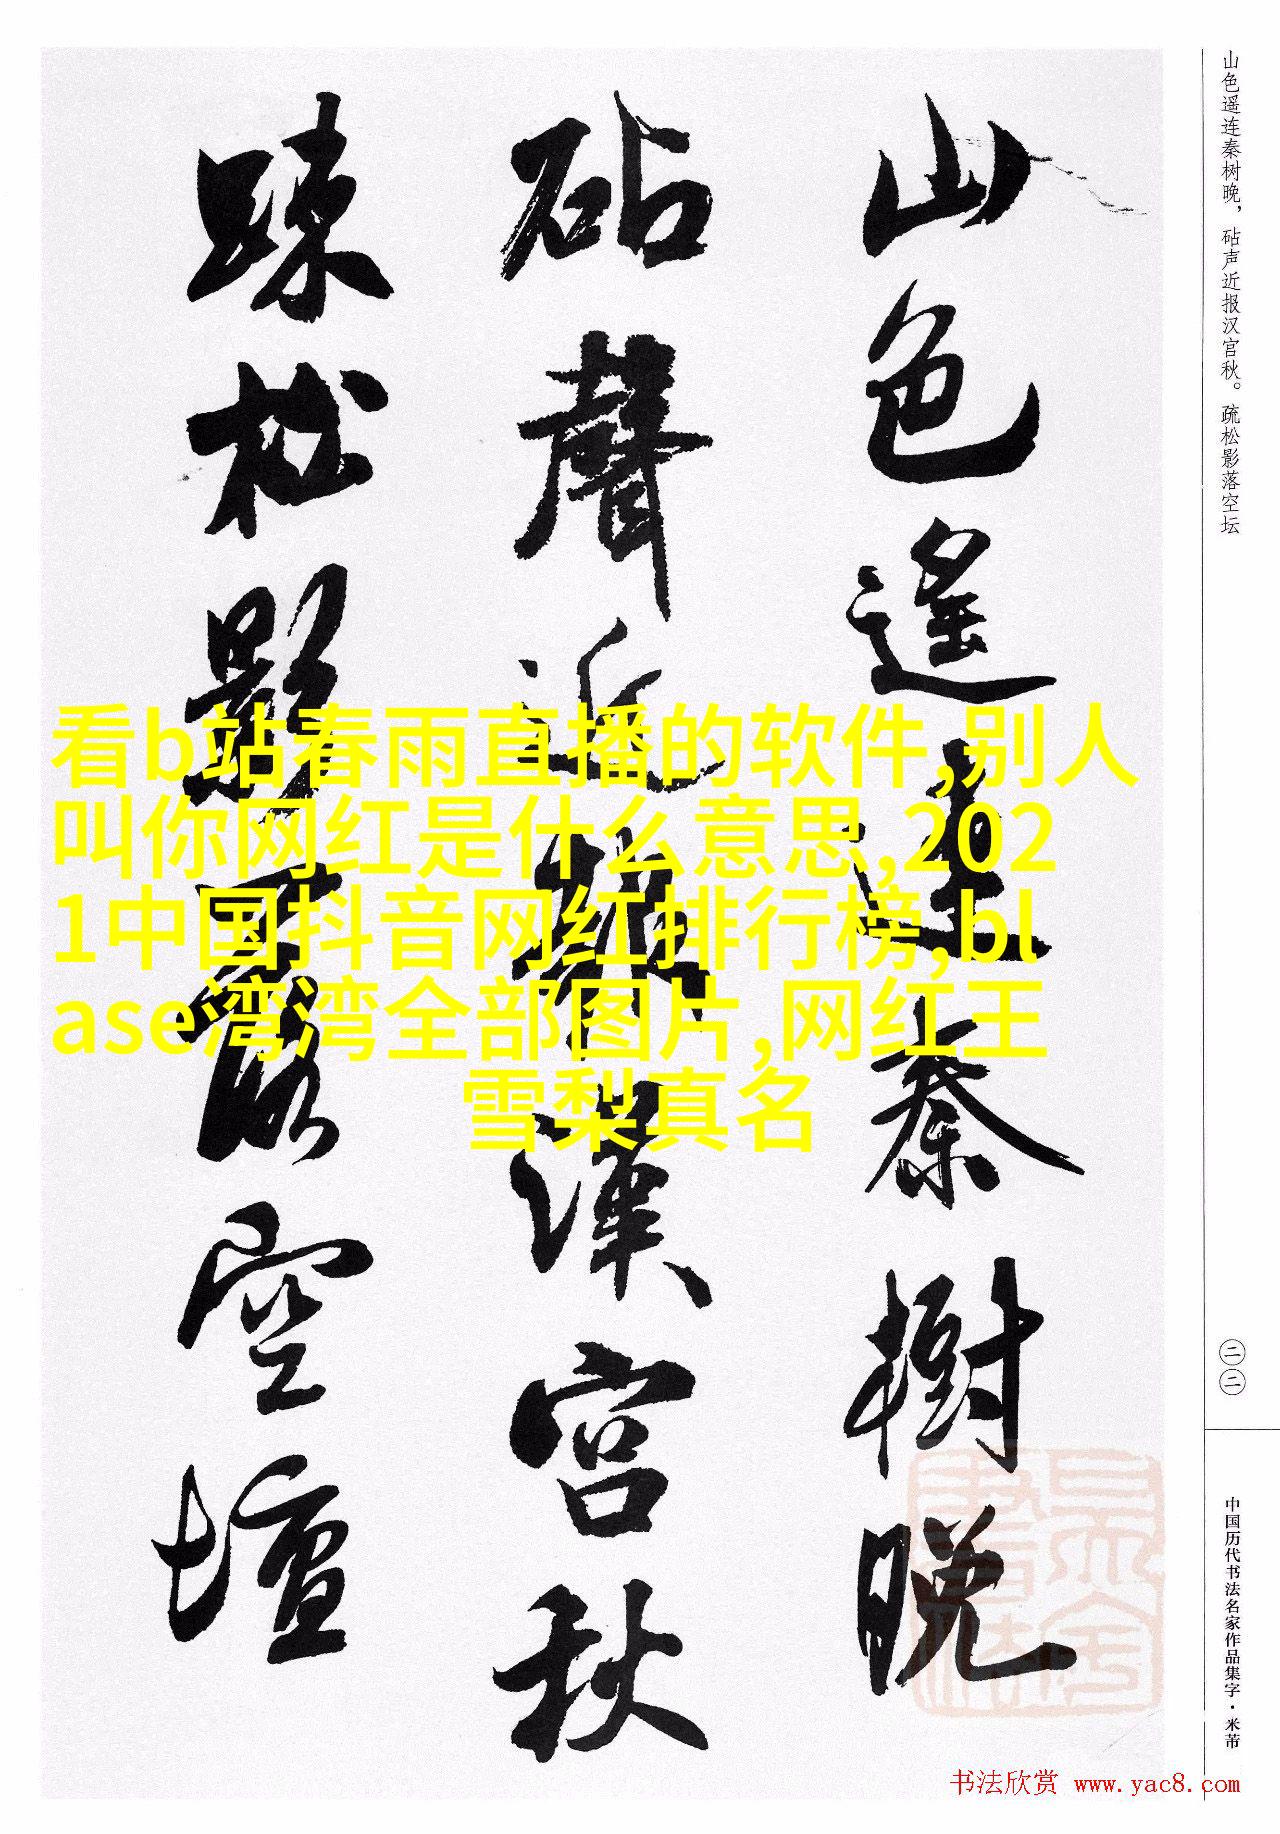 山色遥连秦树晚，砧声近报汉宫秋。疏松影落空坛
山色遥连秦樹晚
砧聲近報漢宮秋
踈松影落空壇
看b站春雨直播的软件,别人
叫你网红是什么意思,202
1中国抖音网红排行榜,bl
ase湾湾全部图片,网红王
雪梨真名
二二
中国历代书法名家作品集字·米芾
书法欣赏 www.yac8.com